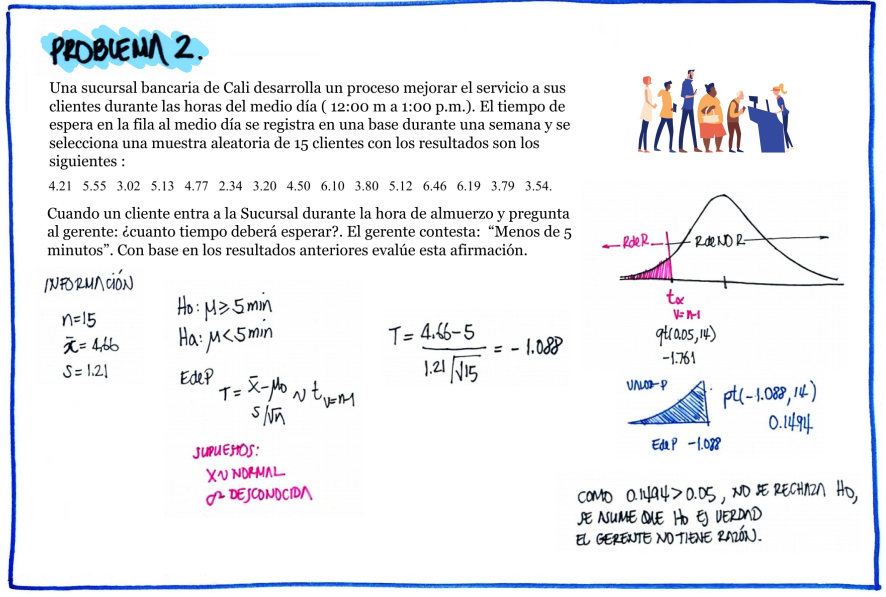 PROBLEMA 2.
Una sucursal bancaria de Cali desarrolla un proceso mejorar el servicio a sus
clientes durante las horas del medio día ( 12:00 m a 1:00 p.m.). El tiempo de
espera en la fila al medio día se registra en una base durante una semana y se
selecciona una muestra aleatoria de 15 clientes con los resultados son los
siguientes :
4.21 5.55 3.02 5.13 4.77 2.34 3.20 4.50 6.10 3.80 5.12 6.46 6.19 3.79 3.54.
Cuando un cliente entra a la Sucursal durante la hora de almuerzo y pregunta
al gerente: ¿cuanto tiempo deberá esperar?. El gerente contesta: “Menos de 5
minutos”. Con base en los resultados anteriores evalúe esta afirmación.
INFORMACIÓN
n=15
x̄= 4,66
S= 1.21
Ho: μ≥5min
Ha: μ<5min
EdeP
T= x̄-μ0 / S/√n ~ t v=n-1
SUPUESTOS:
X~NORMAL
σ² DESCONOCIDA
T= 4.66-5 / 1.21/√15 = -1.088
RdeR
RdeNO R
tα
v=n-1
qt(0.05,14)
-1.761
VALOR-P
pt(-1.088,14)
0.1494
EdeP -1.088
COMO 0.1494>0.05, NO SE RECHAZA Ho,
SE ASUME QUE Ho ES VERDAD
EL GERENTE NO TIENE RAZÓN.